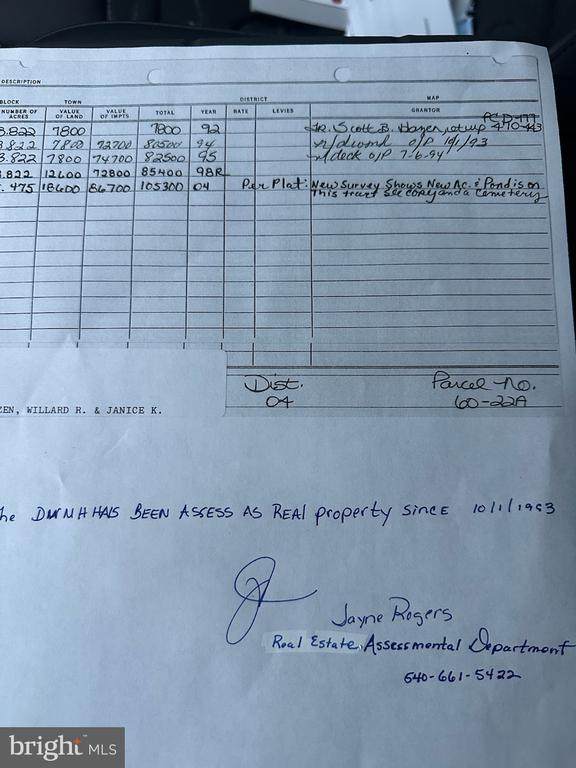 DESCRIPTION
BLOCK TOWN DISTRICT MAP
NUMBER OF ACRES VALUE OF LAND VALUE OF IMPTS TOTAL YEAR RATE LEVIES GRANTOR
3.822 7800 7800 92 Fr. Scott B. Hazen, et up 470-443
3.822 7800 72700 80500 94 n/dwmh o/p 10/1/93
3.822 7800 74700 82500 95 n/deck o/p 7-6-94
3.822 12600 72800 85400 98R
.475 18600 86700 105300 04 Per Plat: New Survey Shows New Ac. & Pond is on
This tract see copy and a Cemetery
Dist. Parcel No.
04 60-22A
ZEN, WILLARD R. & JANICE K.
he DWMH HAS BEEN ASSESS AS REAL property since 10/1/1993
Jayne Rogers
Real Estate Assessmental Department
540-661-5422
bright MLS